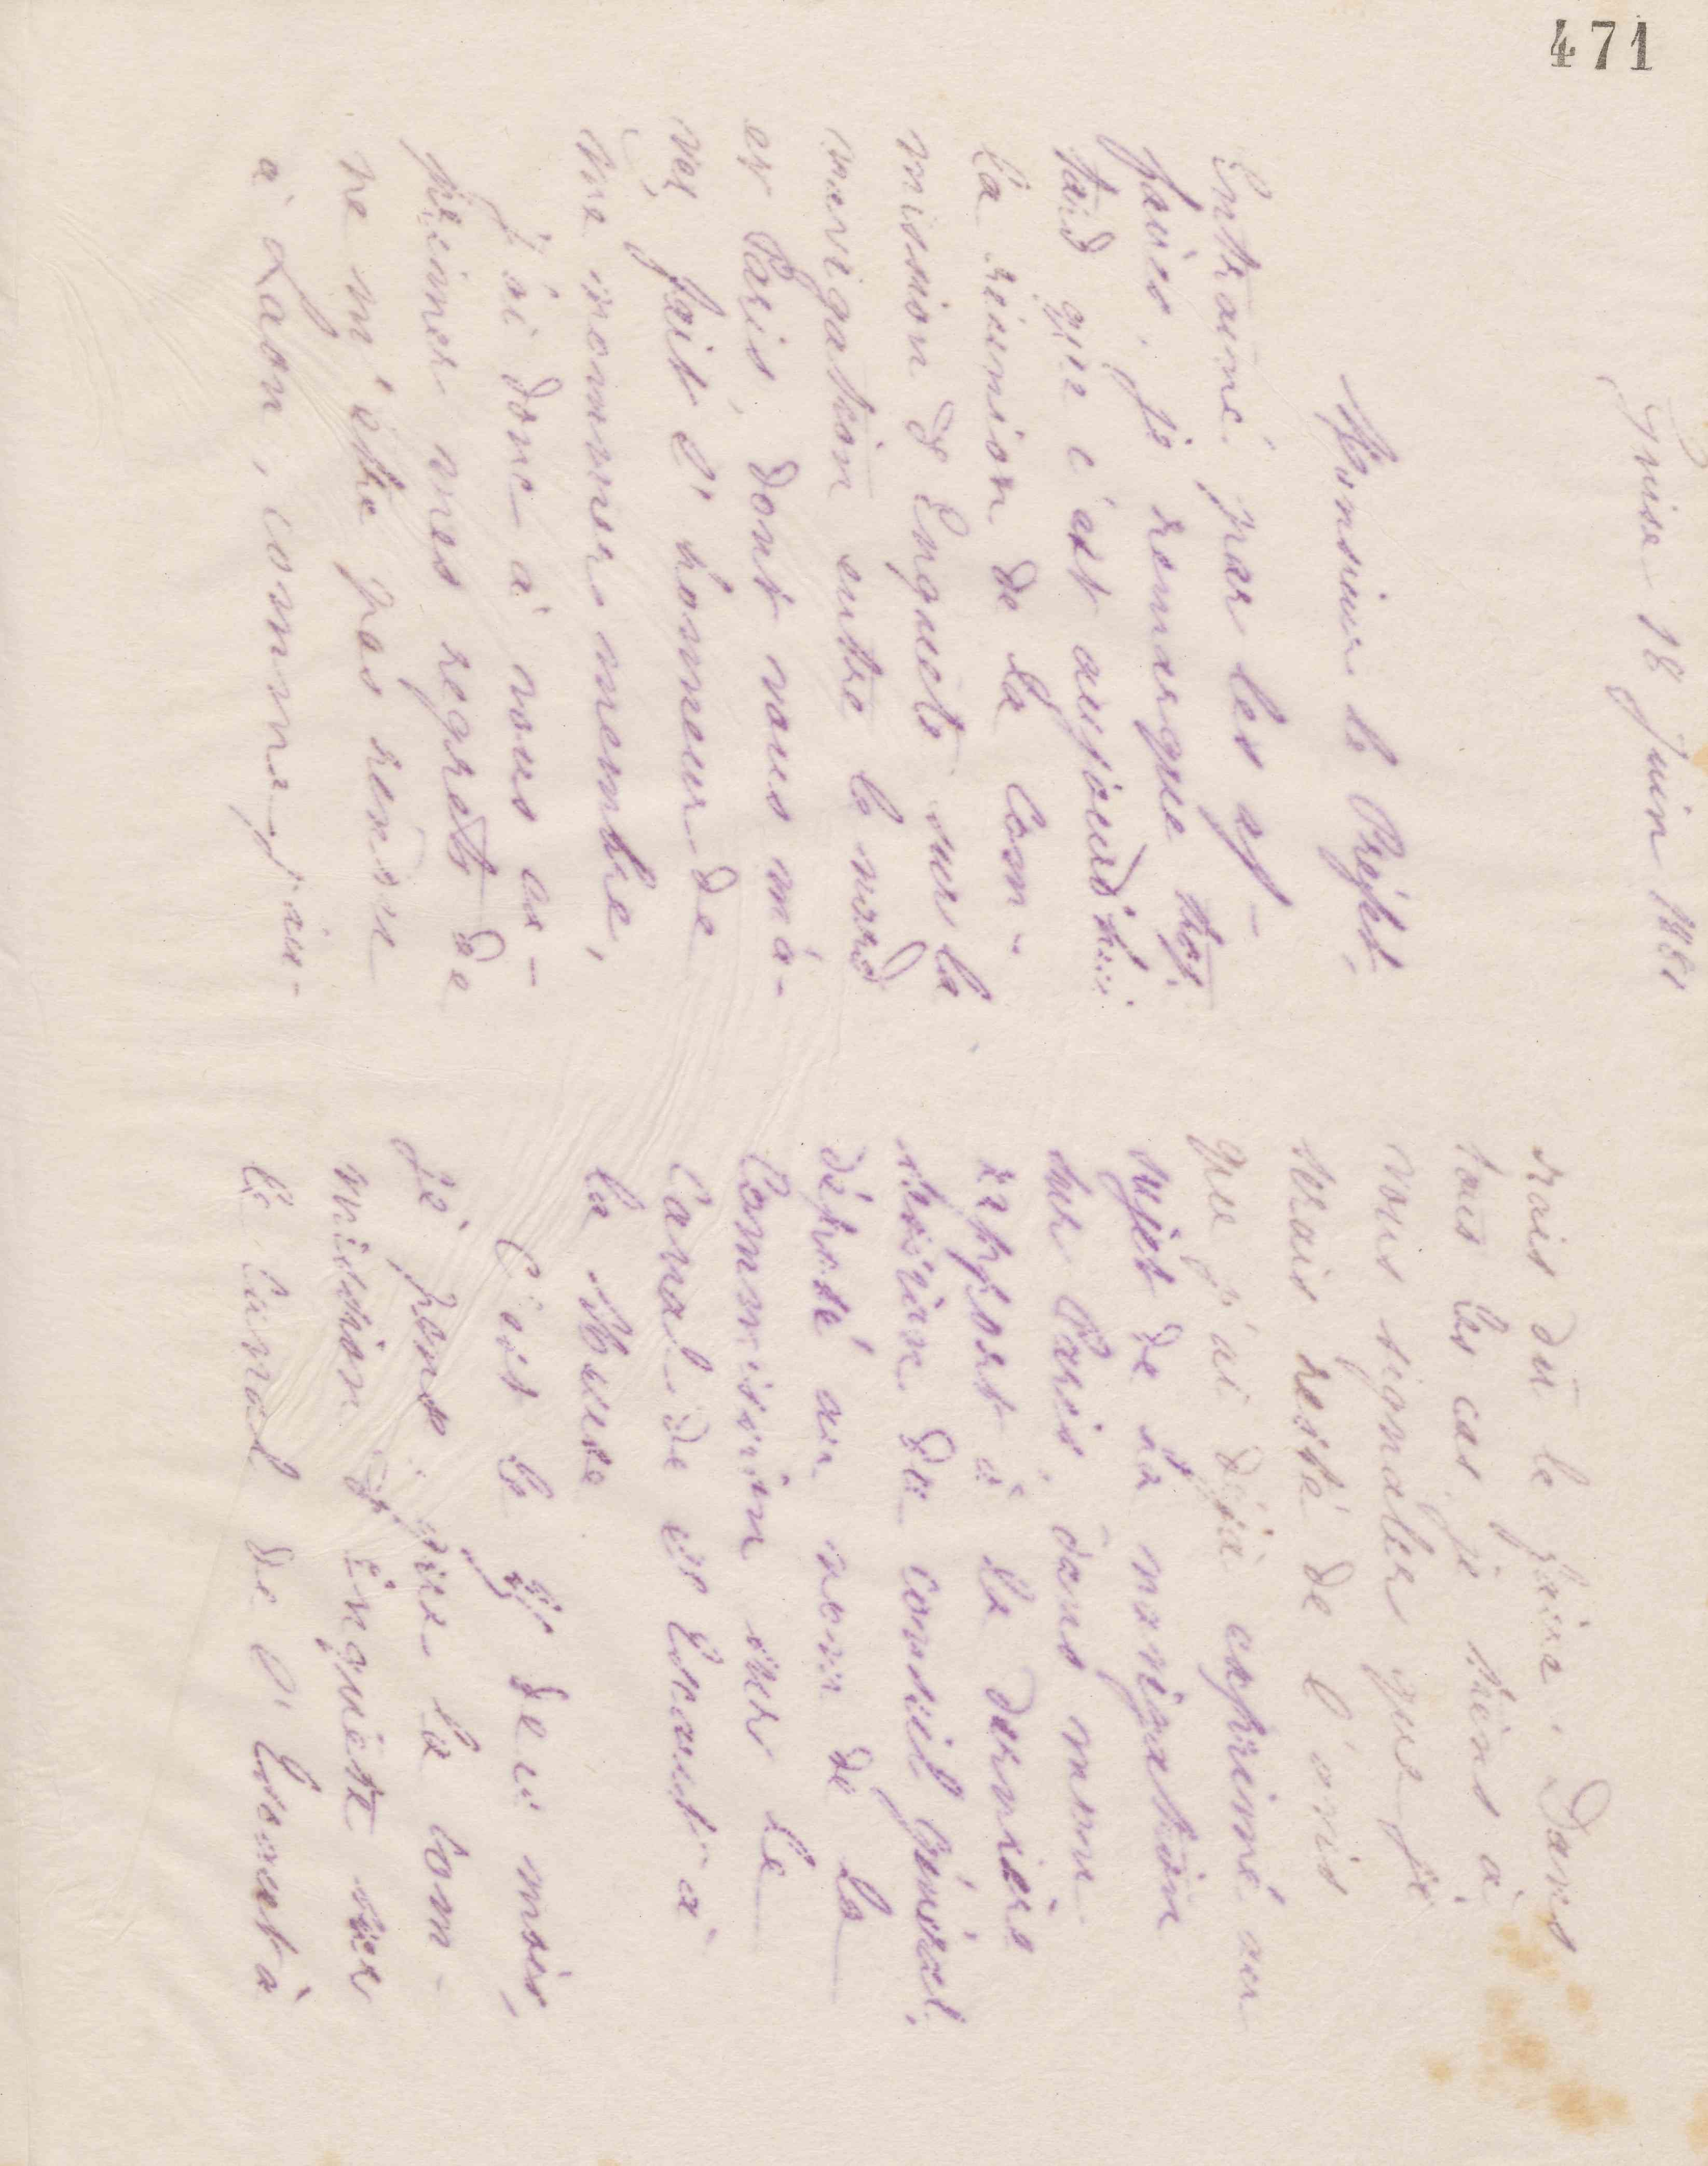 471
Guise 18 juin 1881
Monsieur le Préfet,
Entraîné par les af-
faires, je remarque trop
tard que c'est aujourd'hui
la réunion de la Com-
mission d'Enquete sur la
navigation entre le nord
et Paris, dont vous m'a-
vez fait l'honneur de
me nommer membre,
J'ai donc à vous ex-
primer mes regrets de
ne m'être pas rendu
à Laon, comme j'au-
rais dû le faire. Dans
tous les cas je tiens à
vous signaler que je
serais resté de l'avis
que j'ai déjà exprimé au
sujet de la navigation
sur Paris, dans mon
rapport à la dernière
session du conseil général,
déposé au nom de la
Commission sur le
Canal de l'Escaut à
la Meuse
C'est le 27 de ce mois,
je pense, que la Com-
mission d'enquête sur
le Canal de l'Escaut à